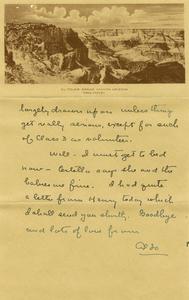 EL TOVAR, GRAND CANYON, ARIZONA
largely drawn upon unless things
get really serious, except for such
of Class 3 as volunteer.
Well - I must get to bed
now - Estella says she and the
babies are fine. I had quite
a letter from Henry today which
I shall send you shortly. Goodbye
and lots of love from